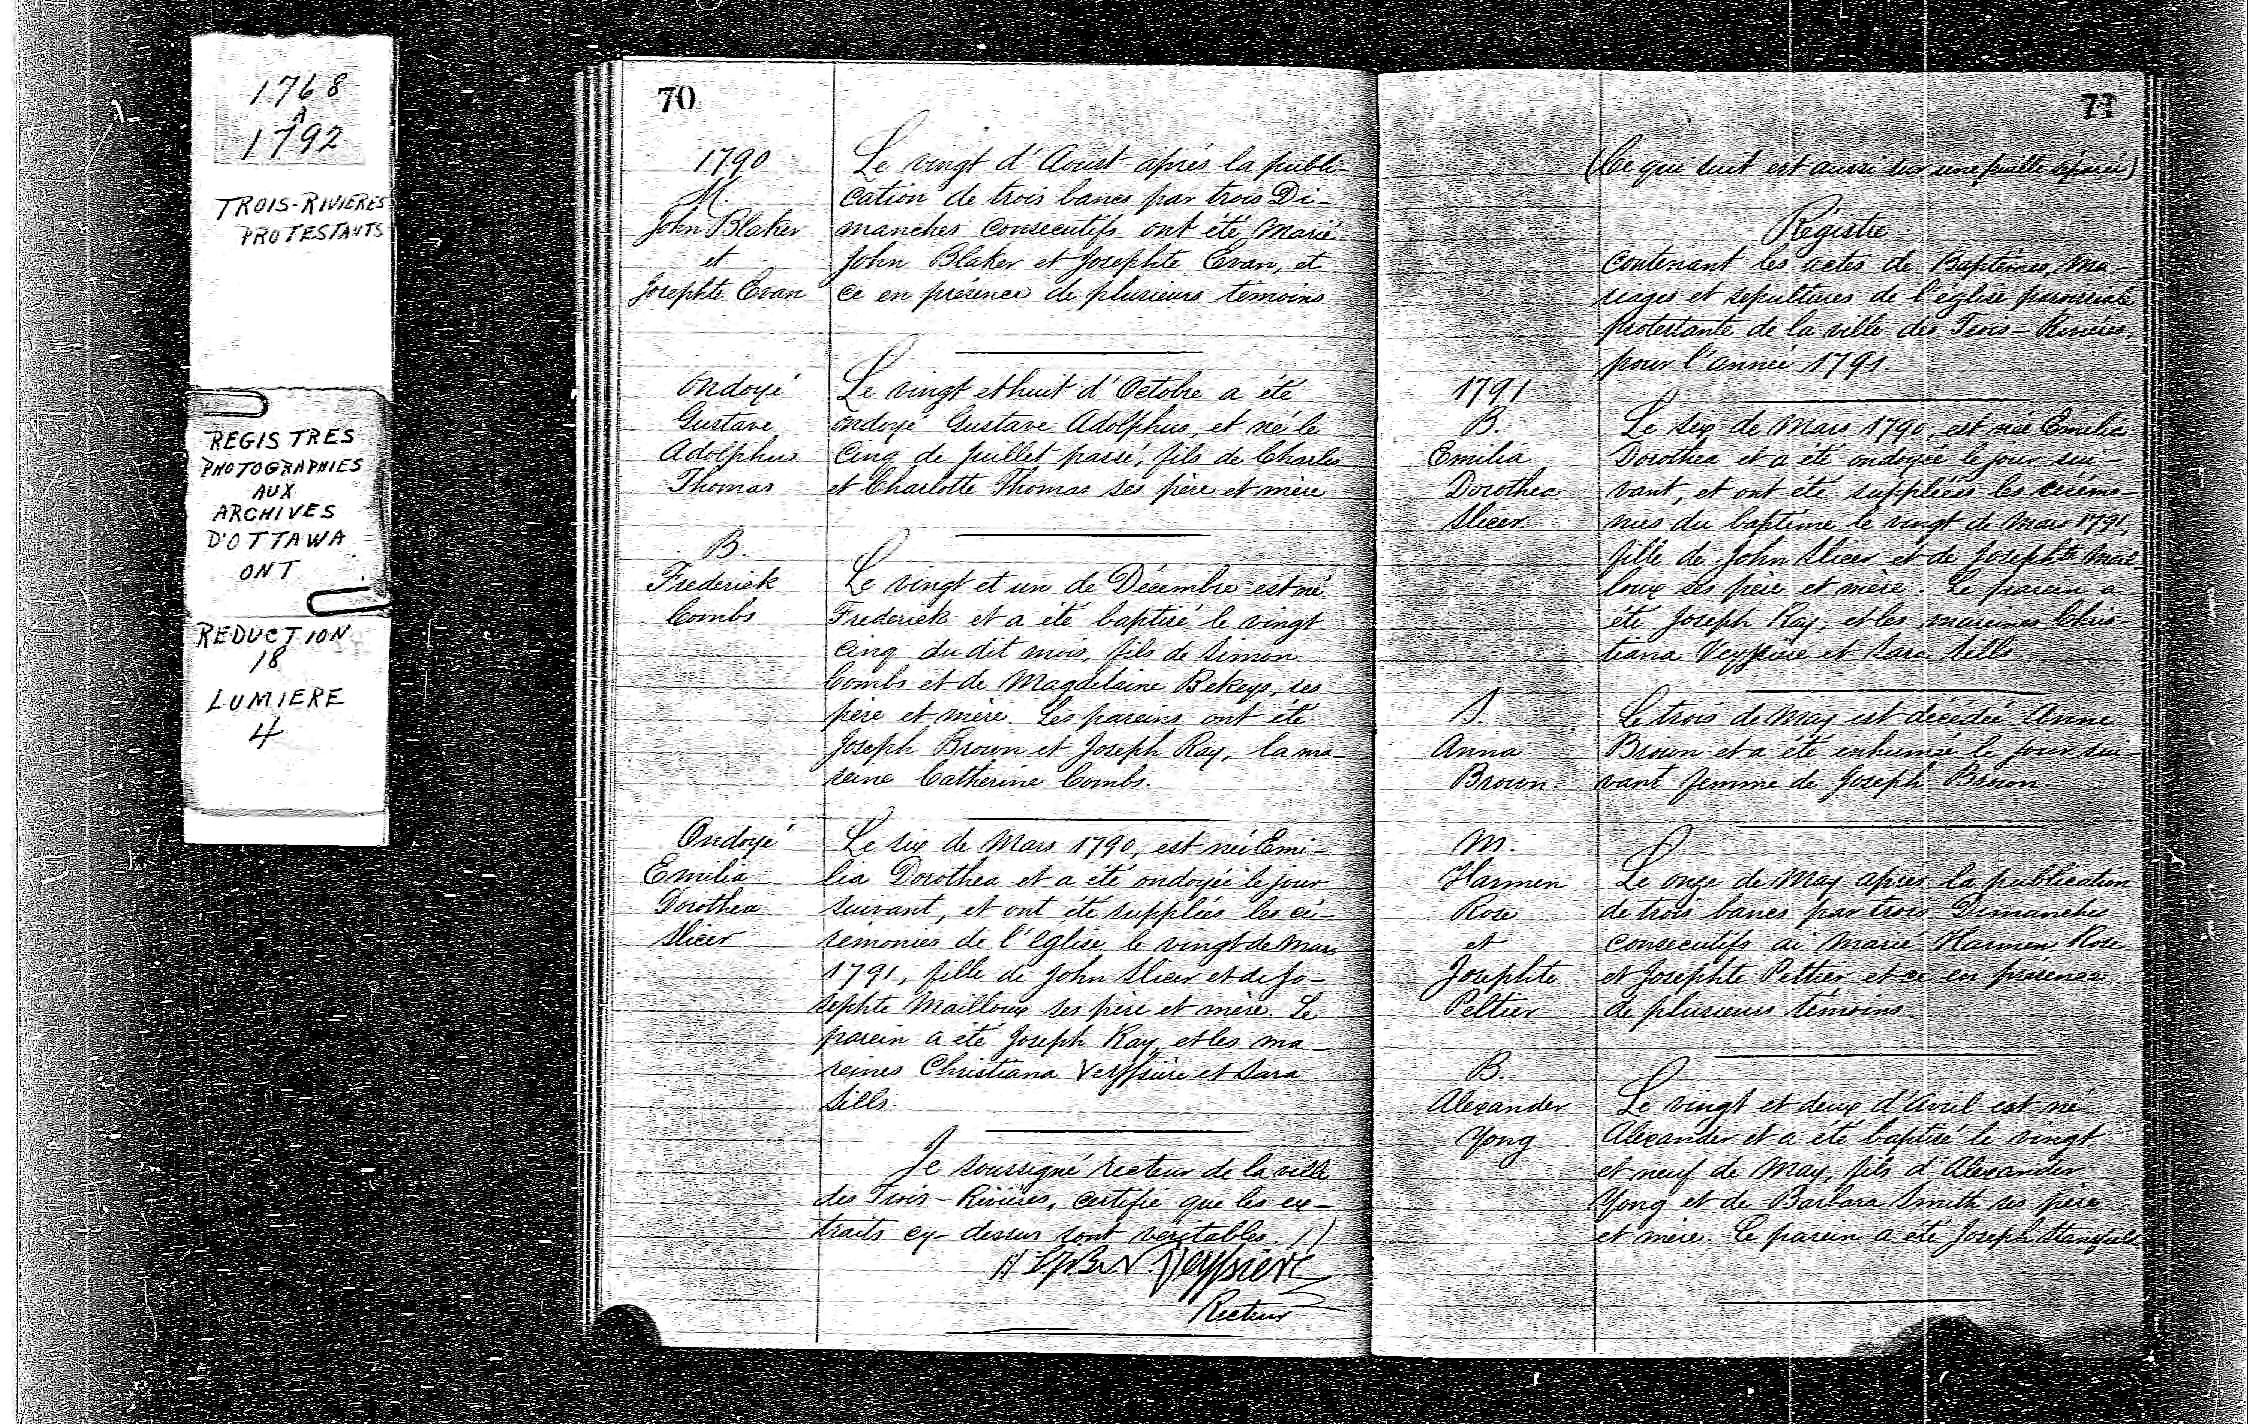 1768
à
1792
TROIS-RIVIERES
PROTESTANTS
REGISTRES
PHOTOGRAPHIES
AUX
ARCHIVES
D'OTTAWA
ONT
REDUCTION
18
LUMIERE
4
70
1790
M.
John Blaker
et
Josephte Evan
Le vingt d'Aoust après la publi-
cation de trois bancs par trois Di-
manches consecutifs ont été Marié
John Blaker et Josephte Evan, et
ce en présence de plusieurs témoins
Ondoyé
Gustave
Adolphus
Thomas
Le vingt et huit d'Octobre a été
ondoyé Gustave Adolphus, et né le
cinq de juillet passé, fils de Charles
et Charlotte Thomas ses père et mère
B.
Frederick
Combs
Le vingt et un de Décembre est né
Frederick et a été baptisé le vingt
cinq du dit mois, fils de Simon
Combs et de Magdelaine Bekeys, ses
père et mère. Les pareins ont été
Joseph Brown et Joseph Ray, la ma-
reine Catherine Combs.
Ondoyé
Emilia
Dorothea
Slicer
Le six de Mars 1790, est née Emi-
lia Dorothea et a été ondoyée le jour
suivant, et ont été supplées les cé-
rémonies de l'Eglise le vingt de Mars
1791, fille de John Slicer et de Jo-
sephte Mailloux ses père et mère. Le
parein a été Joseph Ray et les ma-
reines Christiana Veyssière et Sara
Sills.
Je soussigné recteur de la ville
des Trois-Rivières, certifie que les ex-
traits cy-dessus sont véritables.
Veyssière
Recteur
71
(Ce que suit est aussi sur une feuille séparée)
Régistre
contenant les actes de Baptêmes, ma-
riages et sepultures de l'église paroissiale
protestante de la ville des Trois-Rivières,
pour l'année 1791
1791
B.
Emilia
Dorothea
Slicer
Le six de Mars 1790, est née Emelia
Dorothea et a été ondoyée le jour sui-
vant, et ont été suppliées les cérémo-
nies du baptême le vingt de Mars 1791,
fille de John Slicer et de Josephte Mail-
loux ses père et mère. Le parein a
été Joseph Ray, et les mareines Chris-
tiana Veyssière et Sara Sills
S.
Anna
Brown
Le trois de May est décédée Anne
Brown et a été inhumée le jour sui-
vant femme de Joseph Brown
M.
Harmen
Rose
et
Josephte
Peltier
Le onze de May après la publication
de trois bancs par trois Dimanches
consecutifs ai marié Harmen Rose
et Josephte Peltier et ce en présence
de plusieurs témoins
B.
Alexander
Yong
Le vingt et deux d'Avril est né
Alexander et a été baptisé le vingt
et neuf de May, fils d'Alexander
Yong et de Barbara Smith ses père
et mère. Le parein a été Joseph